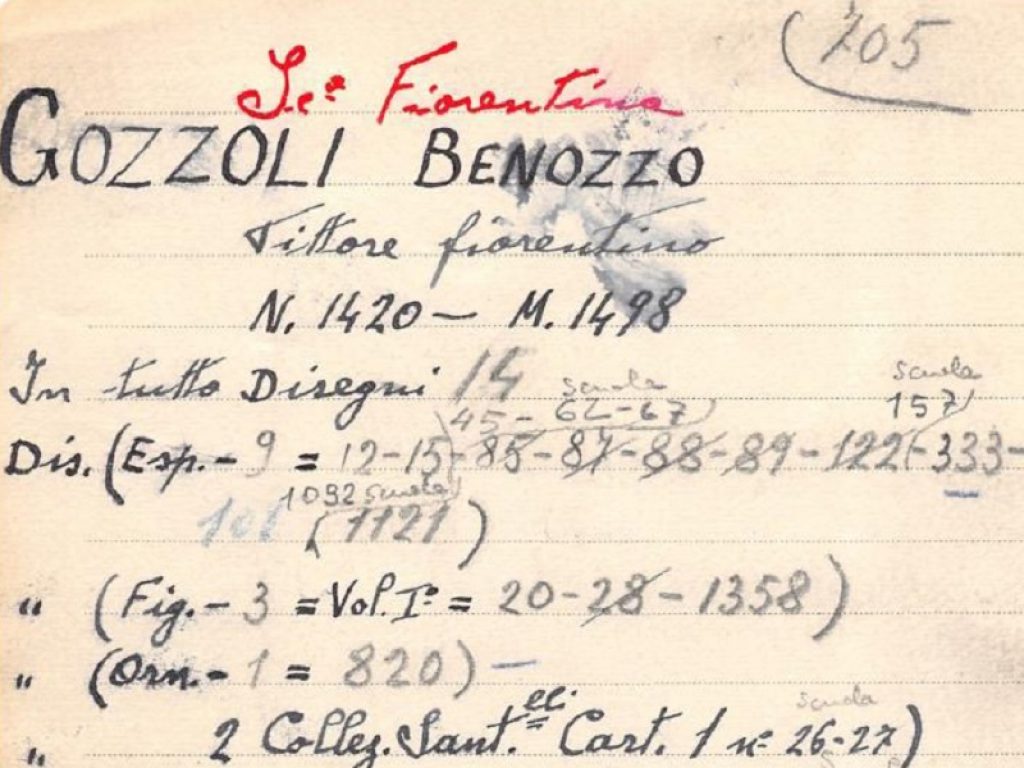 (705
S.ª Fiorentina
GOZZOLI BENOZZO
Pittore fiorentino
N. 1420 — M. 1498
In tutto Disegni 14
scuola scuola
45 - 62 - 67) 157)
Dis. (Esp. - 9 = 12-15)-85-87-88-89-122(-333-
1092 scuola)
101 (1121)
" (Fig. - 3 = Vol. Iº = 20-28-1358)
" (Orn. - 1 = 820) —
scuola
" 2 Collez. Sant.elli Cart. 1 nº 26-27)